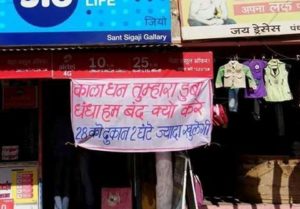 LIFE
जियो
Sant Sigaji Gallary
जय ड्रेसेस
10
25
काला धन तुम्हारा डुबा
धंधा हम बंद क्यों करे
28 को दुकान 2 घंटे ज्यादा खुलेगी